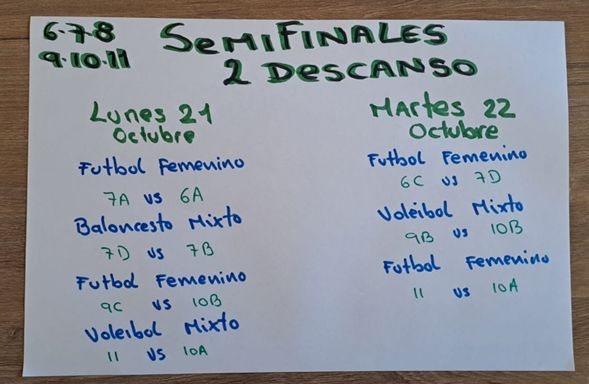 6.7.8
9.10.11
SEMIFINALES
2 DESCANSO
Lunes 21
Octubre
Futbol Femenino
7A vs 6A
Baloncesto Mixto
7D vs 7B
Futbol Femenino
9C vs 10B
Voleibol Mixto
11 vs 10A
Martes 22
Octubre
Futbol Femenino
6C vs 7D
Voleibol Mixto
9B vs 10B
Futbol Femenino
11 vs 10A